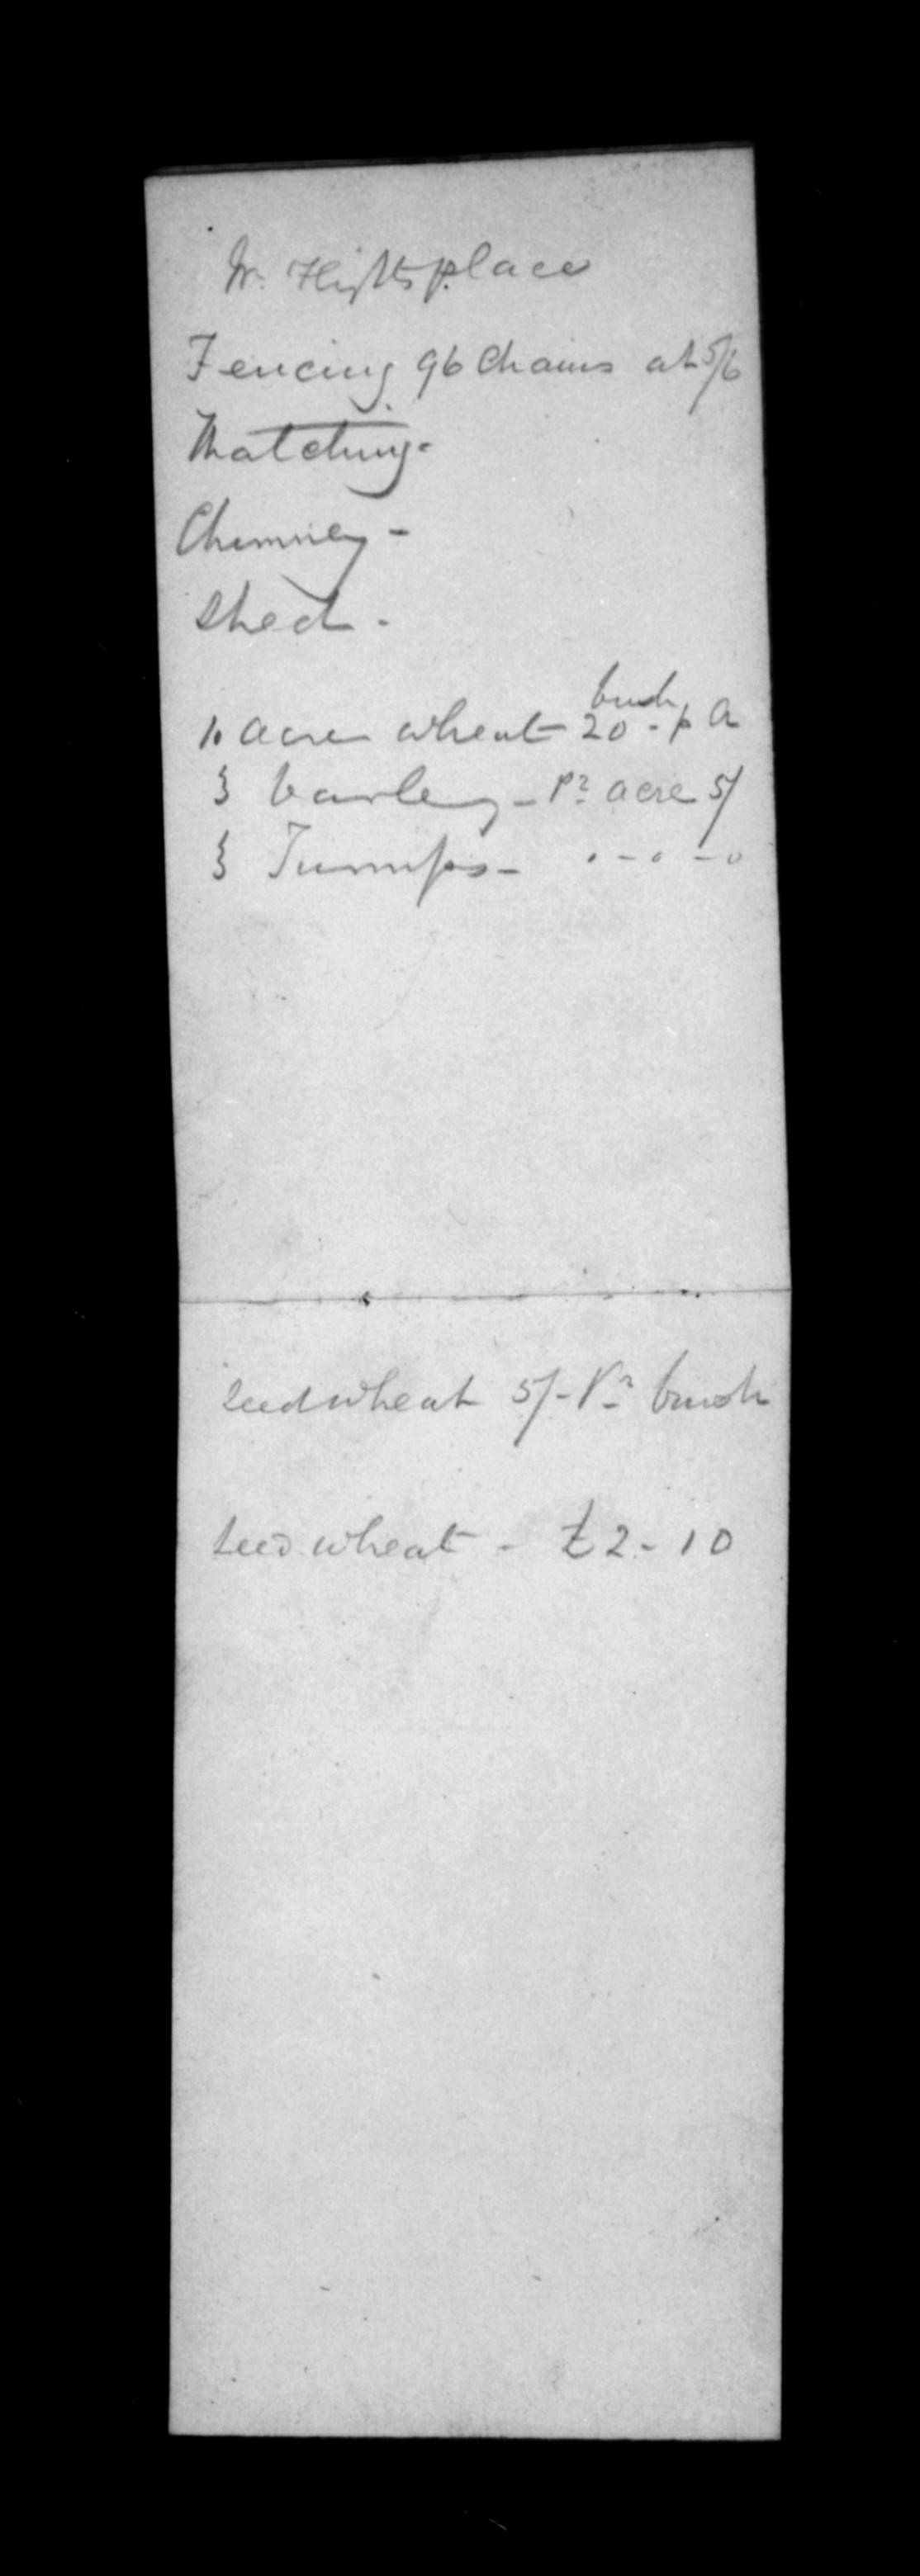 Mr. Flights place
Fencing 96 Chains at 5/6
Thatching -
Chimney -
Shed -
bush
10 acres wheat 20 - p a
3 barley - pr acre 5/
3 Turnips - " - " - "
Seed wheat 5/- pr bush
Seed wheat - £2 - 10